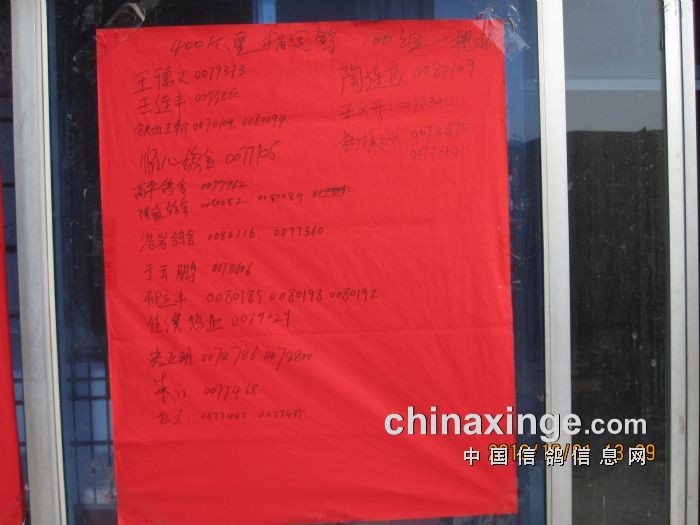 400公里 指定鸽 100组一把抓
王德文 0079373
王连丰 0077860
0070109. 0080094
怡心鸽舍 0077106
高平鸽舍 0077962
祥益鸽舍 0080082 0080084
浩岩鸽舍 0080116. 0077560
于云鹏 0078606
0080185 0080198 0080192
佳澳鸽业 0077024
史亚明 0072786 0072800
朱江 0077468
0077442 0077485
陶连成 0080109
王义开:
杨振 0078675
0077441
chinaxinge.com
中国信鸽信息网